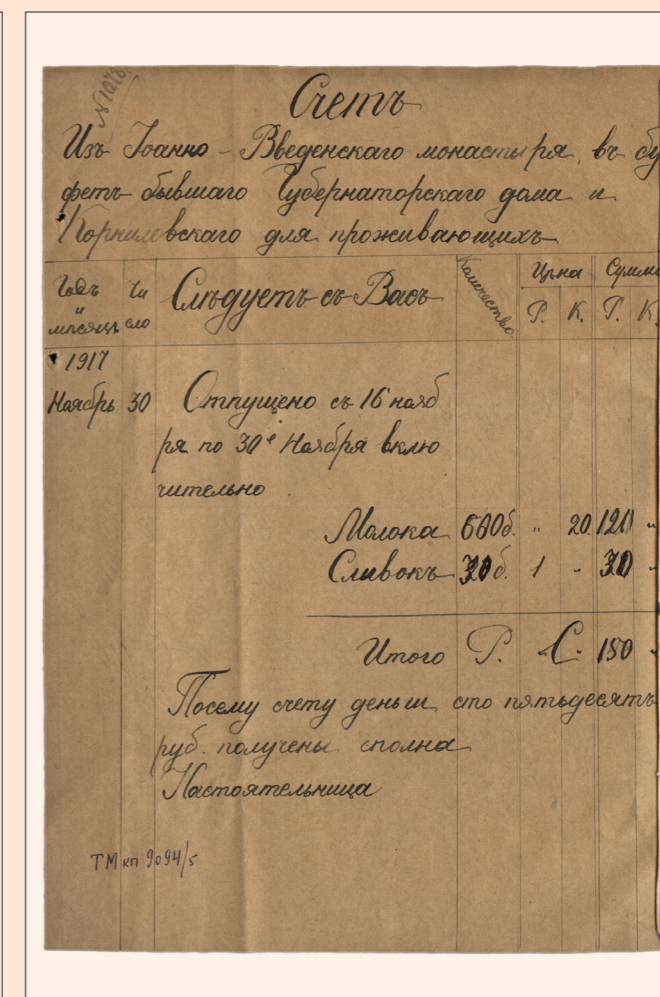 № 1028.
Счетъ
Изъ Іоанно - Введенскаго монастыря, въ бу
фетъ бывшаго Губернаторскаго дома и
Корниловскаго для проживающихъ
Годъ и мѣсяцъ Чи сло Слѣдуетъ съ Васъ Количество. Цѣна Сумма
Р. К. Р. К.
1917
Ноябрь 30 Отпущено съ 16 нояб
ря по 30е Ноября вклю
чительно
Молока 600б. " 20. 120 "
Сливокъ 30 б. 1 " 30 "
Итого Р. С. 150 "
Посему счету деньги сто пятьдесятъ
руб. получены сполна
Настоятельница
ТМ кп 9094/5